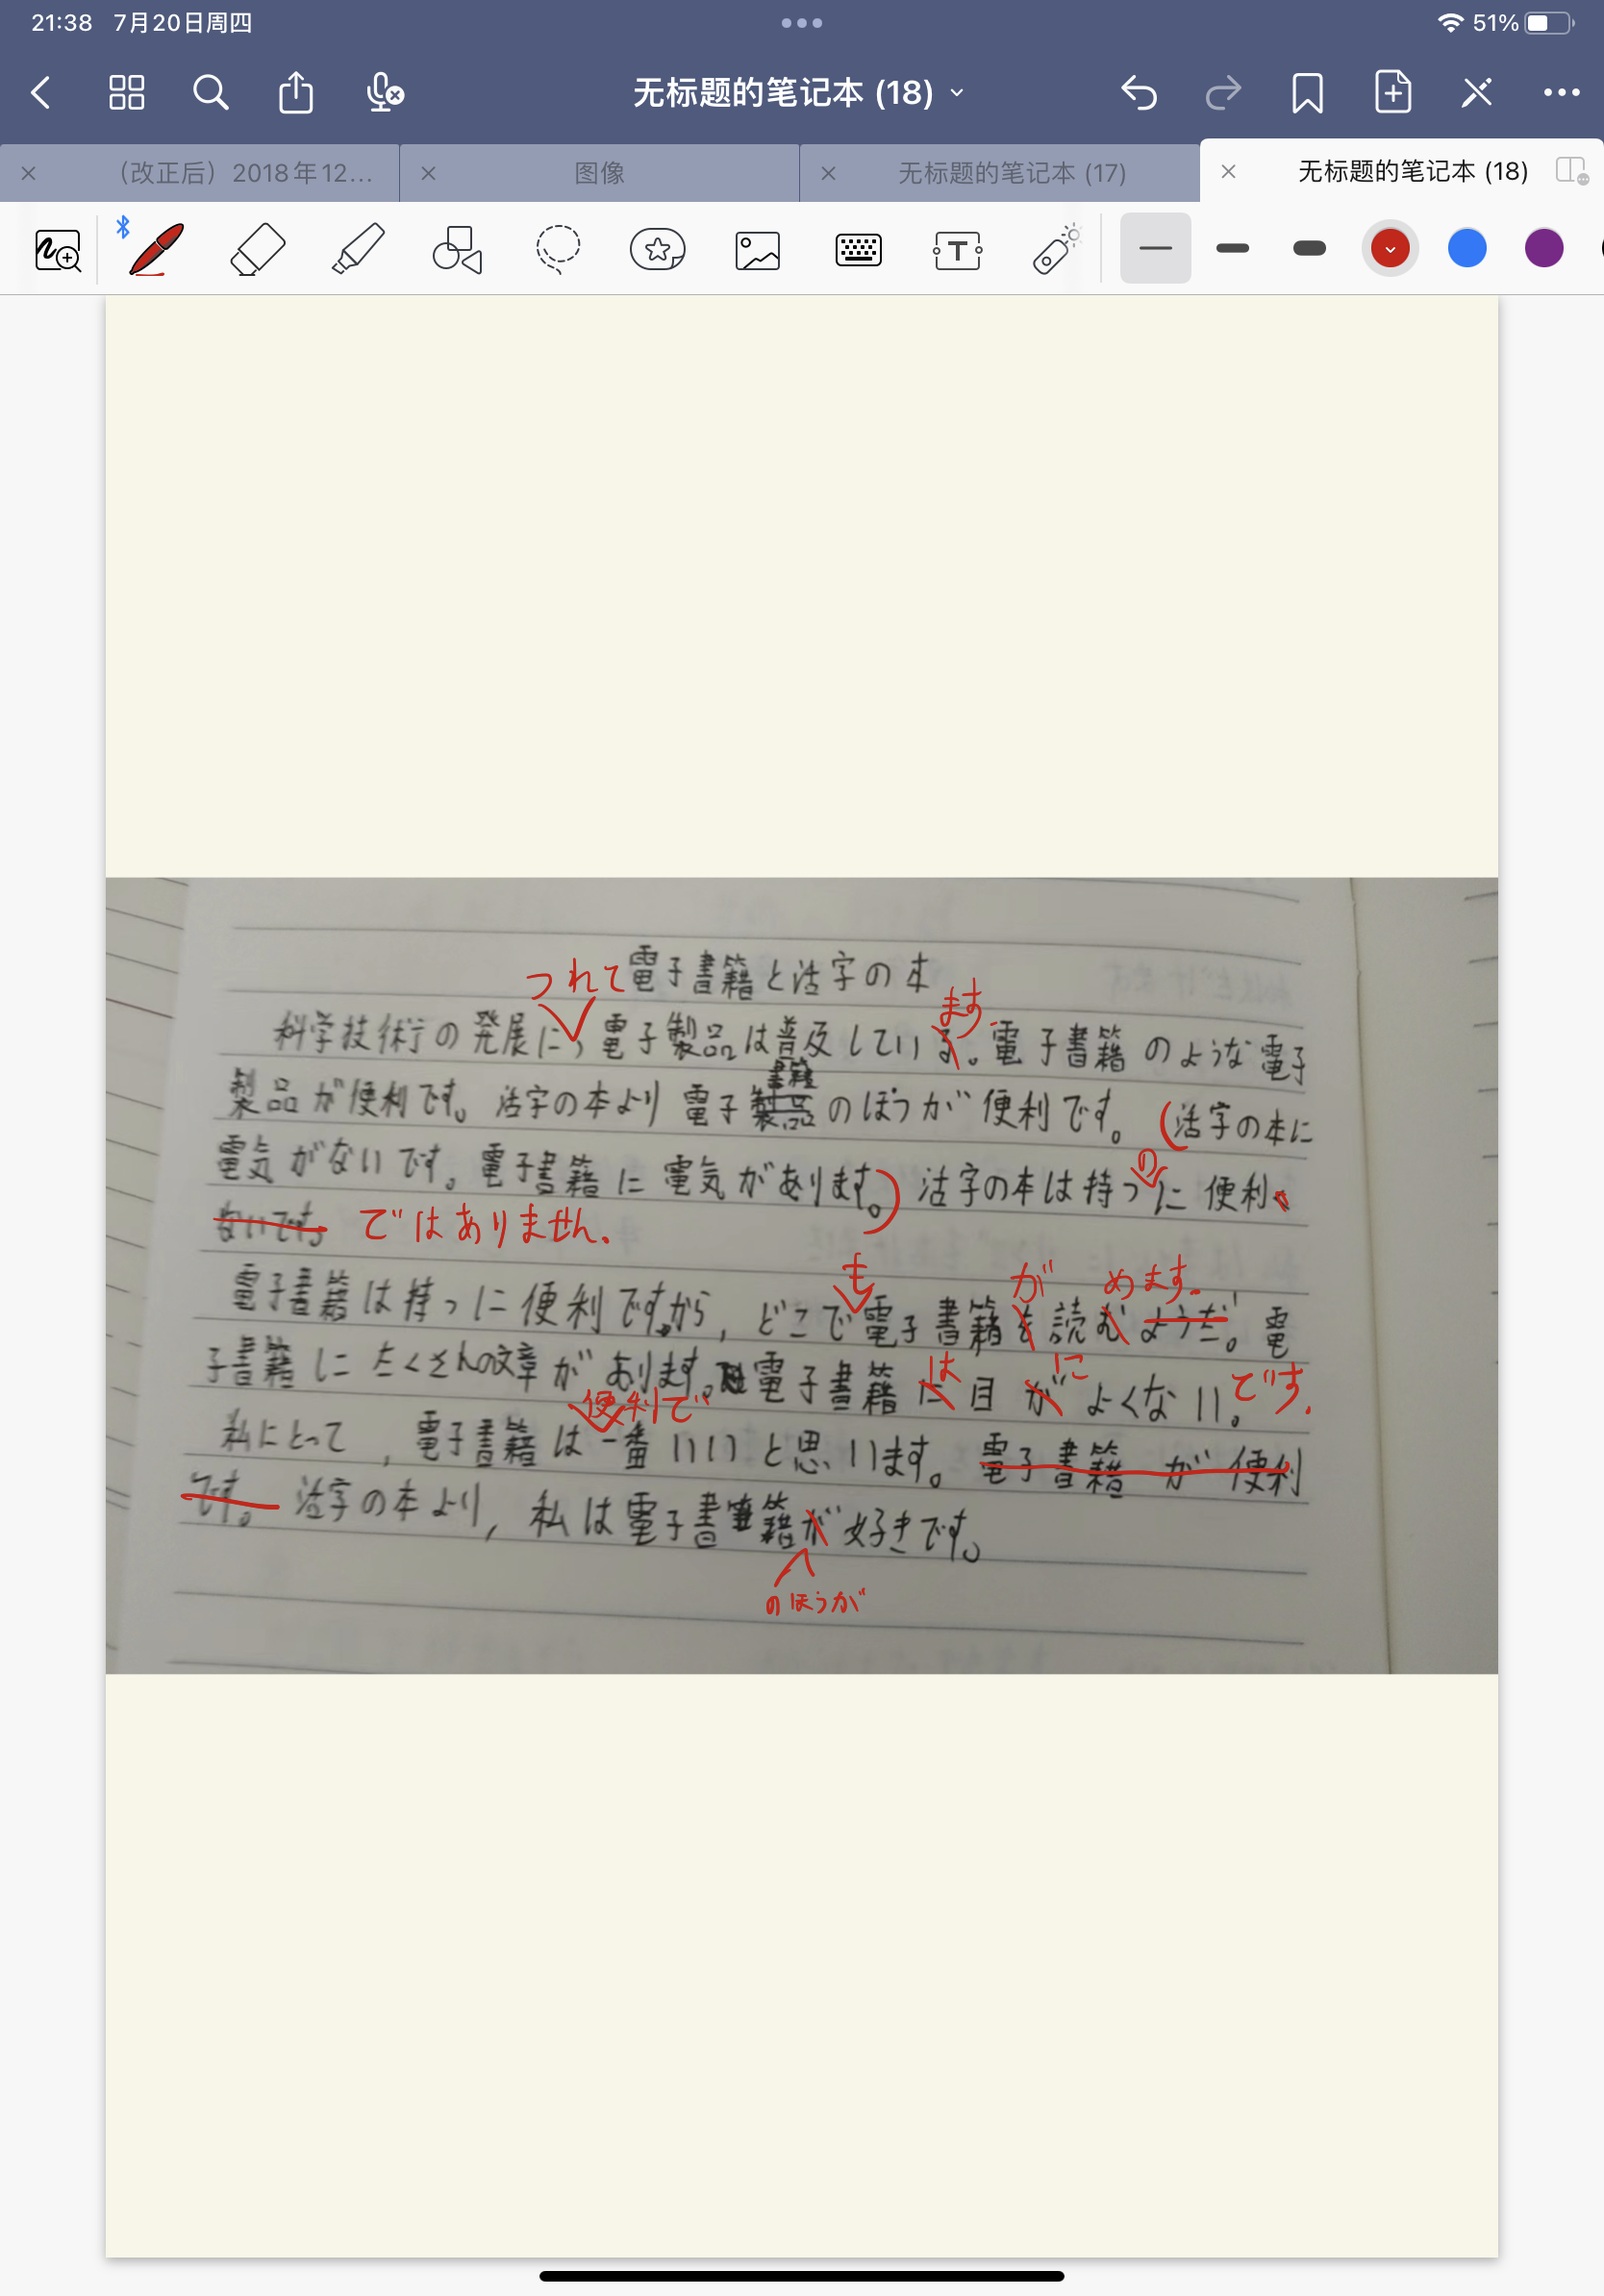 21:38 7月20日周四
51%
无标题的笔记本 (18)
（改正后）2018年12...
图像
无标题的笔记本 (17)
无标题的笔记本 (18)
電子書籍と活字の本
つれて
ます.
科学技術の発展に,電子製品は普及している。電子書籍のような電子
書籍
製品が便利です。活字の本より電子製品のほうが便利です。(活字の本に
の
電気がないです。電子書籍に電気があります。)活字の本は持つに便利く
ないです。ではありません.
も が めます.
電子書籍は持つに便利ですから,どこで電子書籍を読むようだ。電
は に です.
子書籍にたくさんの文章があります。電子書籍に目がよくない。
便利で
私にとって,電子書籍は一番いいと思います。電子書籍が便利
です。活字の本より,私は電子書籍が好きです。
のほうが